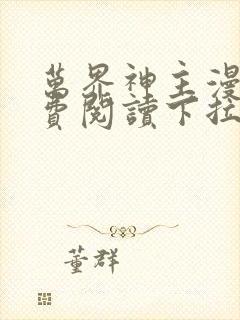 萬界神主漫
費閱讀下拉
董群